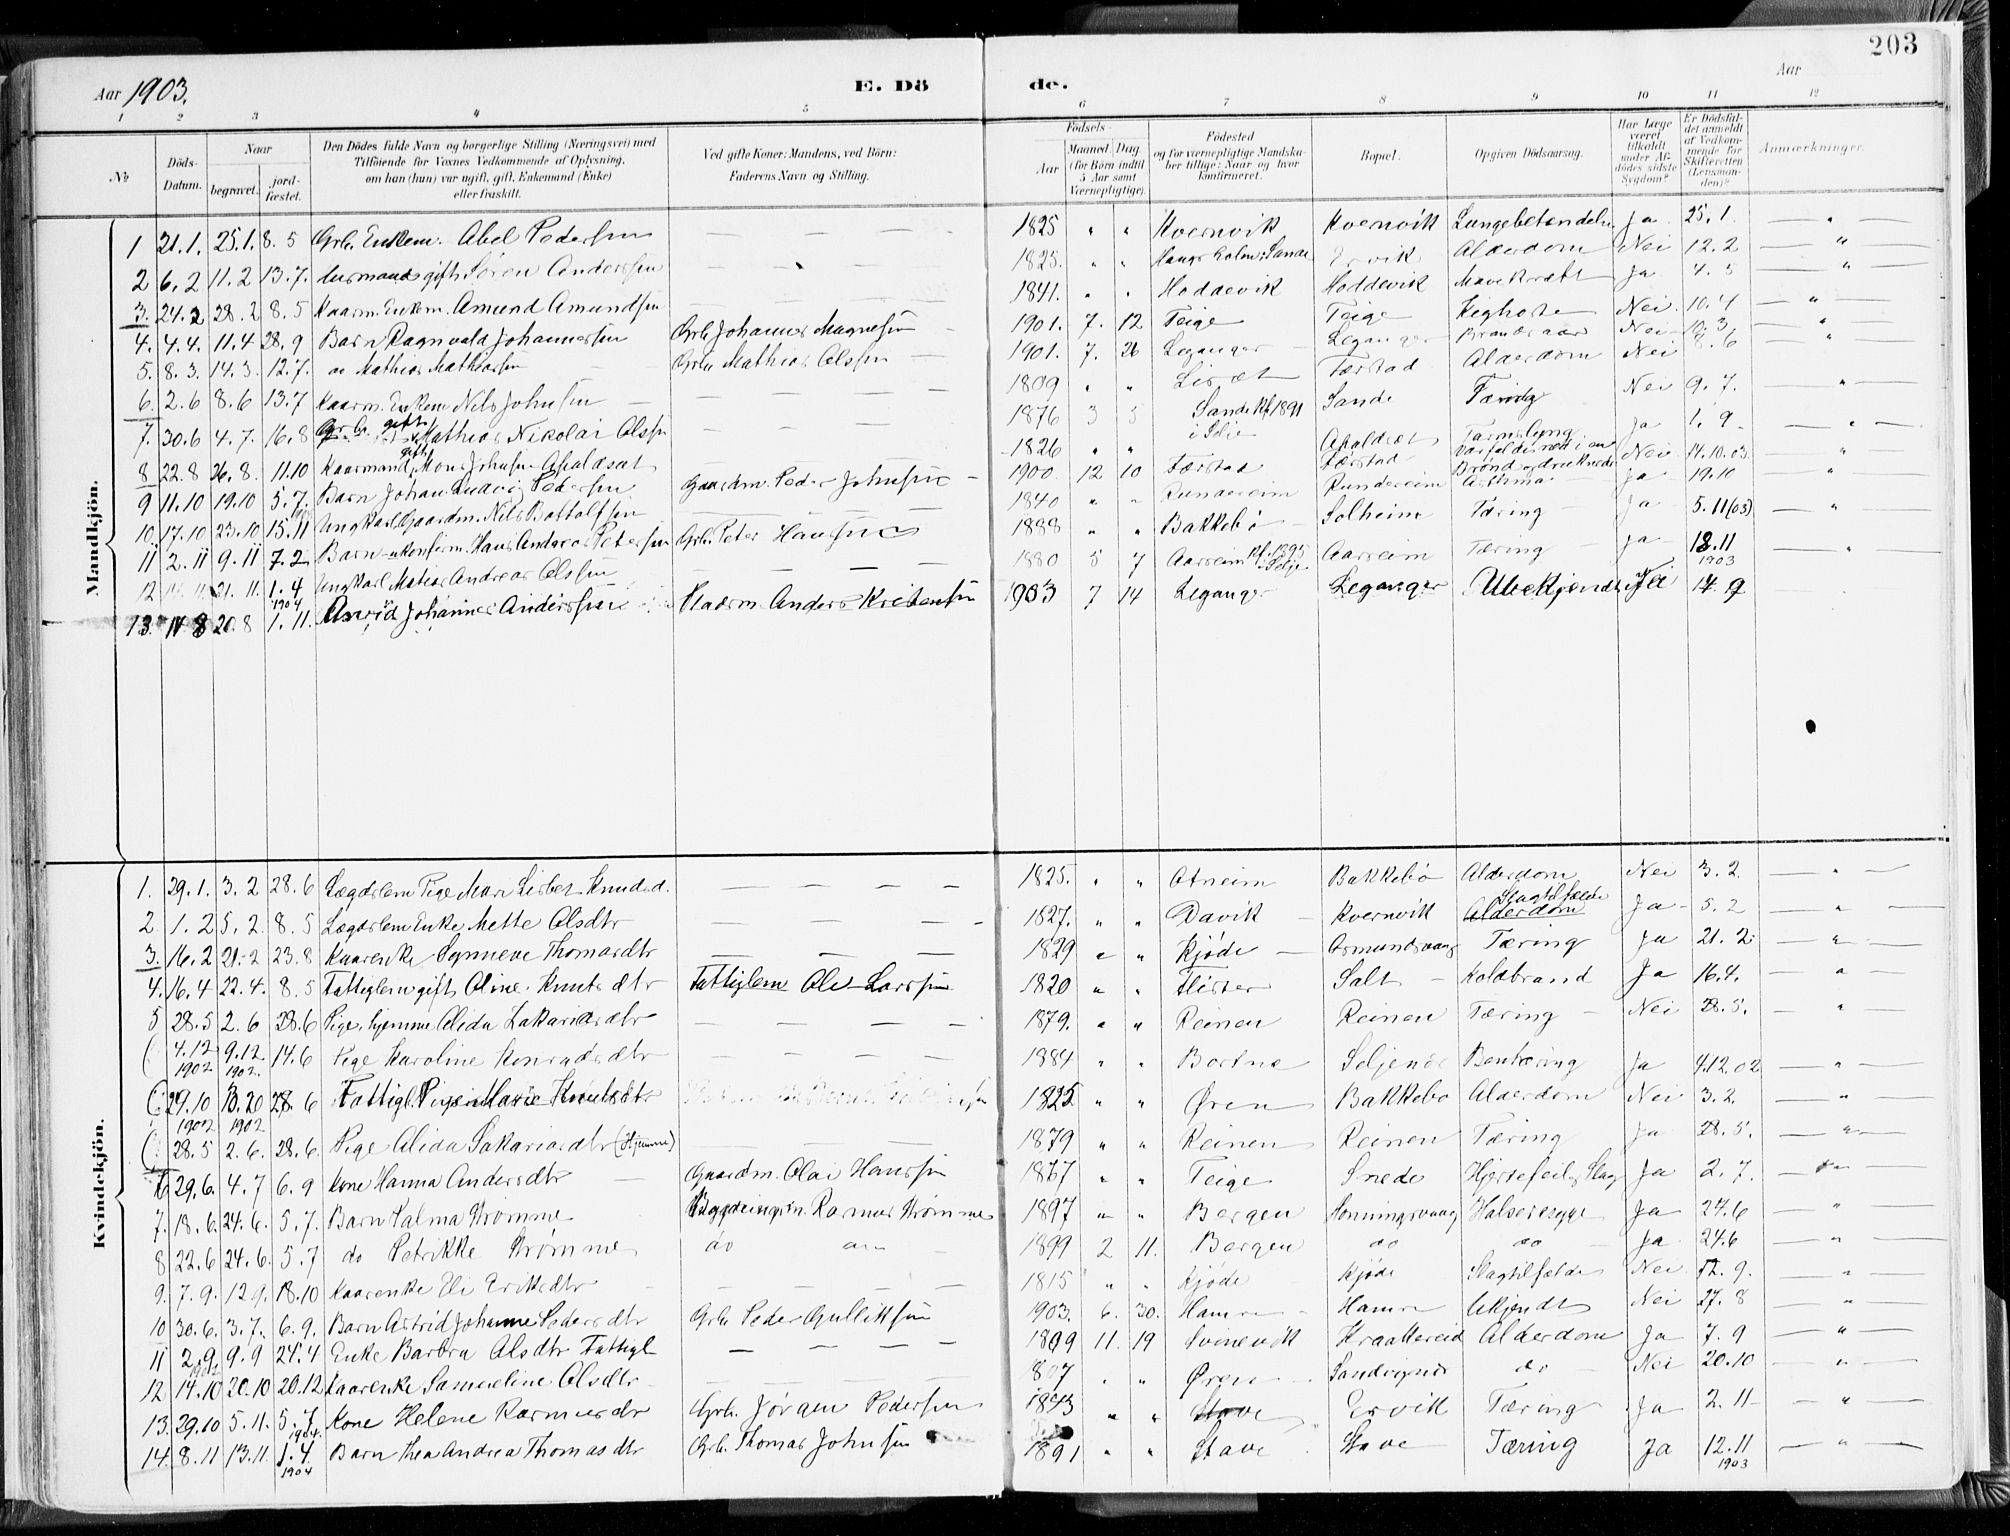 203
Aar 1903. E. Dö de. Aar
1 2 3 4 5 6 7 8 9 10 11 12
No
Döds-Datum.
Naar
begravet.
jord-fæstet.
Den Dödes fulde Navn og borgerlige Stilling (Næringsvei) med
Tilföiende for Voxnes Vedkommende af Oplysning,
om han (hun) var ugift, gift, Enkemand (Enke)
eller fraskilt.
Ved gifte Koner: Mandens, ved Börn:
Faderens Navn og Stilling.
Födsels-
Aar
Maaned. Dag.
(for Börn indtil
5 Aar samt
Værnepligtige).
Födested
og for værnepligtige Mandska-
ber tillige: Naar og hvor
konfirmeret.
Bopæl.
Opgiven Dödsaarsag.
Har Læge
været
tilkaldt
under Af-
dödes sidste
Sygdom?
Er Dödsfal-
det anmeldt
af Vedkom-
mende for
Skifteretten
(Lensman-
den)?
Anmærkninger.
Mandkjön.
1 21.1. 25.1. 8.5 Grb. Enkem. Abel Pedersen — — — — 1825 " " Kvernvik Kvernvik Lungebetændelse Ja 25.1. — " —
2 6.2 11.2 13.7. gift Søren Anderssen — — — 1825. " " Sande Ervik Alderdom Nei 12.2 — " —
3. 24.2 28.2 8.5 Kaarm. Enkem. Amund Amundsen — — — — 1841. " " Hoddevik Hoddevik Mavekræft Ja 4.5 — " —
4. 4.4. 11.4 28.9 Barn Ragnvald Johannessen Grb. Johannes Magnesen 1901. 7. 12 Teige Teige Kighoste Nei 10.4 — " —
5. 8.3. 14.3. 12.7. do Mathias Mathiassen Grb. Mathias Olsen 1901. 7. 26 Leganger Leganger Brandsaar Nei 10.3 — " —
6. 2.6 8.6 13.7 Kaarm. Enkem Nils Johnsen — — — 1809 " " Færstad Alderdom Nei 8.6 — " —
7. 30.6 4.7. 16.8 Grb. gift Mathias Nikolai Olssen — — — 1876 3 5 Sande Kf. 1891 i Selje Sande Tæring Nei 9.7. — " —
8 22.8 26.8. 11.10 Kaarmand gift Mons Johnsen Apaldsæt 1826 " " Apaldsæt Ja 1.9 — " —
9 11.10 19.10 5.7. Barn Johan Ludvig Pedersen Gaardm. Peder Johnsen 1900. 12 10 Færstad Færstad Brønd og druknede Nei 14.10.03. — " —
10. 17.10 23.10 15.11 Ungkarl Gaardm. Nils Bottolfsen — — — 1840 " " Rundereim Rundereim Asthma Ja 19.10 — " —
11 2.11 9.11 7.2 Barn ukonfirm. Hans Andreas Petersen Grb. Peter Hansen 1888 " " Bakkebø Solheim Tæring Ja 5.11(03) — " —
12 21.11. 1.4 1904 Ungkarl Matias Andreas Olssen — — — 1880 5 7 Aarseim Kf. 1895 i Selje Aarseim Tæring Ja 18.11 1903 — " —
13. 14.8 20.8 1.11. Arvid Johannes Anderssen Pladsm. Anders Kristensen 1903 7 14 Leganger Leganger Ubekjendt Ja 14.9
Kvindekjön.
1. 29.1. 3.2 28.6 Lægdslem Pige Mari Lisbet Knudsd. — — — — 1825. " " Otneim Bakkebø Alderdom Nei 3.2. — " —
2 1.2 5.2. 8.5 Lægdslem Enke Mette Olsdtr — — — 1827. " " Davik Kvernvik Alderdom Slagtilfælde Ja 5.2 — " —
3. 16.2 21.2 23.8 Kaarenke Synneve Thomasdtr — — — — 1829 " " Kjøde Osmundsvaag Tæring Ja 21.2. — " —
4. 16.4 22.4. 8.5 Fattiglem gift Oline Knutsdtr Fattiglem Ole Larssen 1820 " " Flister Salt Koldbrand Ja 16.4. — " —
5 28.5 2.6 28.6 Pige, hjemme Alida Zakariasdtr — — — — 1879. " " Reinen Reinen Tæring Nei 28.5. — " —
( 4.12 1902 9.12. 1902. 14.6 Pige Karoline Konradsdtr — — — 1884 " " Bortne Seljenes Bentæring Ja 4.12.02 — " —
( 29.10 1902 13.20 1902 28.6 Fattigl. Pige Marie Knutsdtr 1825 " " Øren Bakkebø Alderdom Nei 3.2. — " —
( 28.5 2.6. 28.6. Pige Alida Sakariasdtr (Hjemme) — — — 1879 " " Reinen Reinen Tæring Ja 28.5. — " —
6 29.6. 4.7 6.9 Kone Hanna Andersdtr Gaardm. Olai Hanssen 1867 " " Teige Smede Hjertefeil, Slag Ja 2.7. — " —
7. 18.6. 24.6. 5.7. Barn Valma Strømme Rasmus Strømme 1897 " " Bergen Honningsvaag Halsesyge Ja 24.6 — " —
8 22.6 24.6. 5.7 do Petrikke Strømme do 1899 2 11. Bergen do do Ja 24.6 — " —
9. 7.9. 12.9. 18.10 Kaarenke Eli Eriksdtr — — — 1815 " " Kjøde Kjøde Slagtilfælde Nei 12.9. — " —
10 30.6. 3.7. 6.9. Barn Astrid Johanne Pedersdtr Grb. Peder Gullikssen 1903. 6. 30. Hamre Hamre Ukjendt Nei 27.8 — " —
11 2.9 9.9 24.4 Enke Barbra Olsdtr Fattigl — — — — 1899 11. 19 Svinevik Kraakereid Alderdom Ja 7.9 — " —
12 14.10 20.10 20.12 Kaarenke Samueline Olsdtr — — — 807 " " Øren Sandvignes do Nei 20.10 — " —
13. 29.10 5.11. 5.7 1904. Kone Helene Rasmusdtr Grb. Jørgen Pedersen 1843 " " Stave Ervik Tæring Ja 2.11 — " —
14. 8.11 13.11. 1.4. 1904 Barn Thea Andrea Thomasdtr Grb. Thomas Johnsen 1891 " " Stave Stave Tæring Ja 12.11 1903 — " —